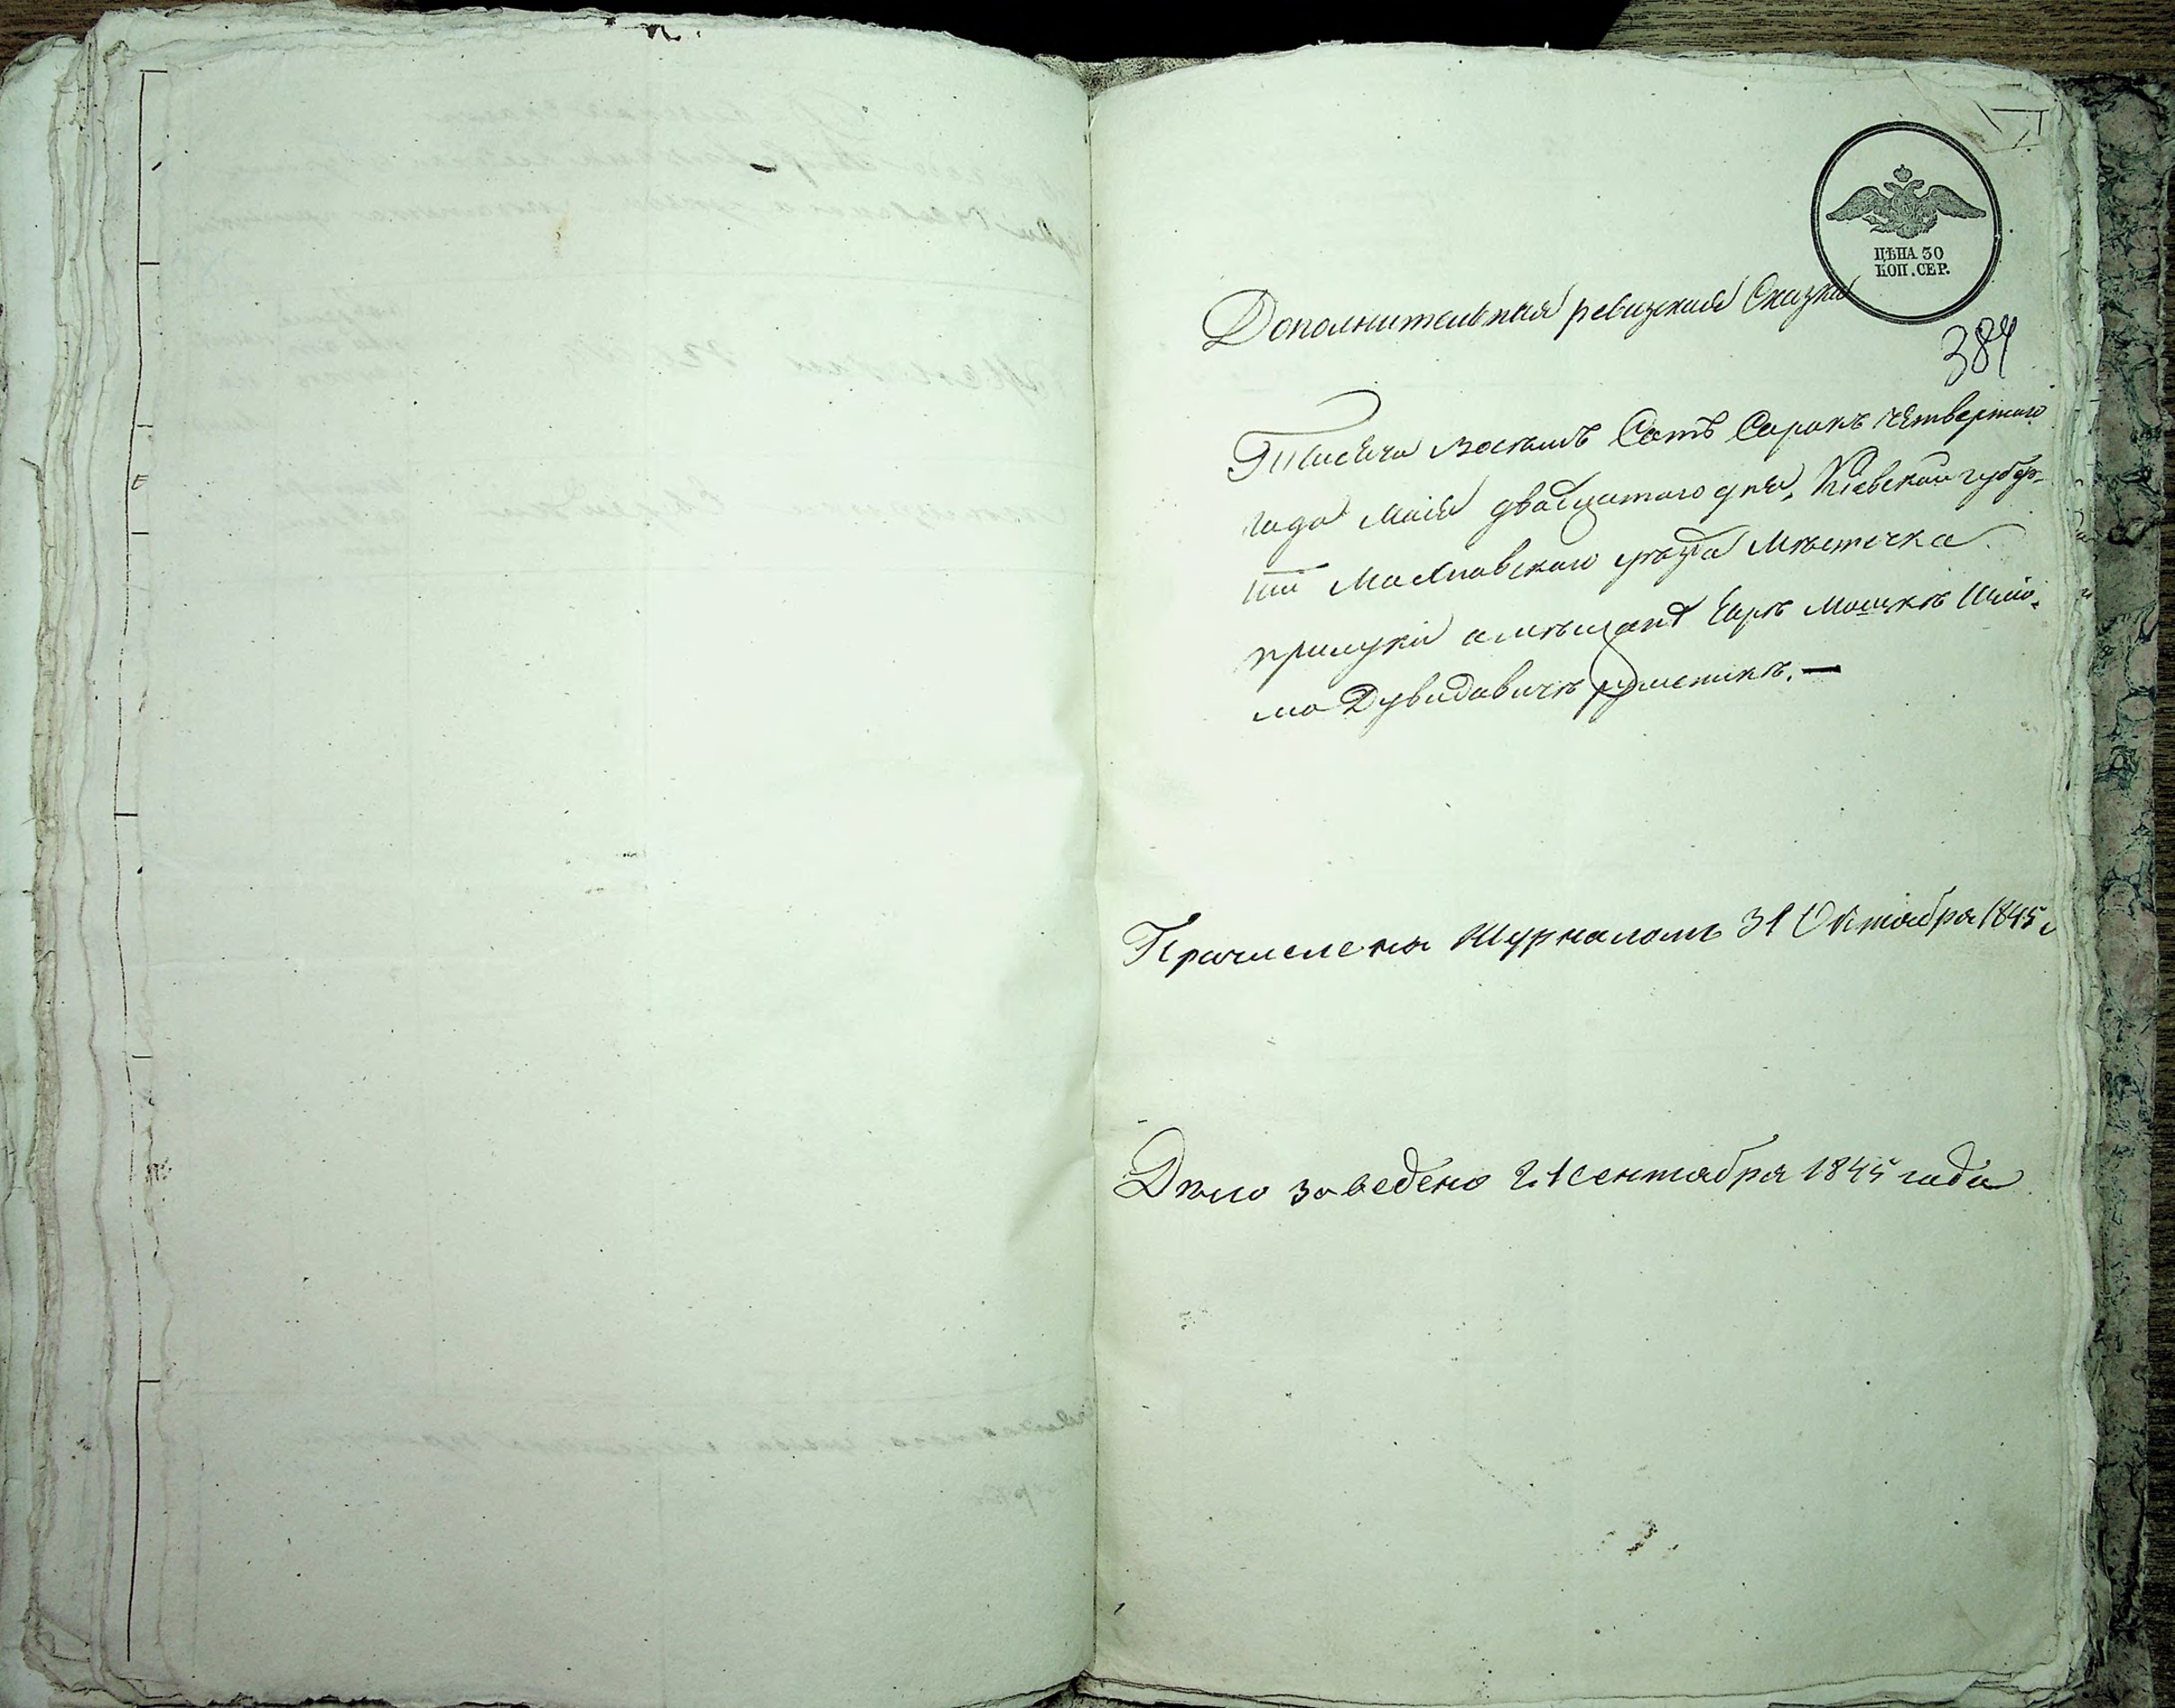 ЦѢНА 30
КОП. СЕР.
Дополнительная ревизская Сказка
384
Тысяча восемь Сотъ Сорокъ четвертаго
года маія двадцатого дня, Кіевской губер-
ніи Махновского уѣзда Мѣстечка
прилуки о мѣщан Мошкѣ
Дувидовичѣ
Причислена Журналомъ 31 Октября 1845
Дѣло заведено 21 сентября 1845 года